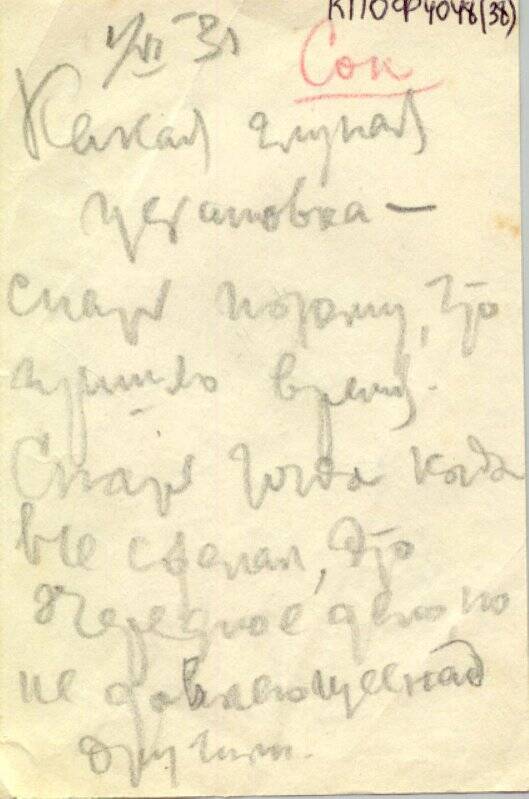 КПОФ4048(38)
1/VI 31
Сон
Какая глупая
установка —
спать потому, что
пришло время.
Спать тогда когда
все сделал, это
очередное дело но
не довлеющее над
другими.